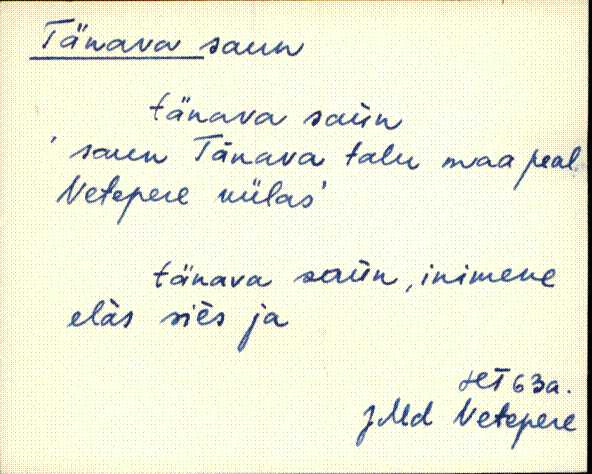 Tänava saun
tänava saùn
' saun Tänava talu maa peal
Vetepere külas'
tänava saùn, inimene
elàs siès ja
63a.
JMd Vetepere